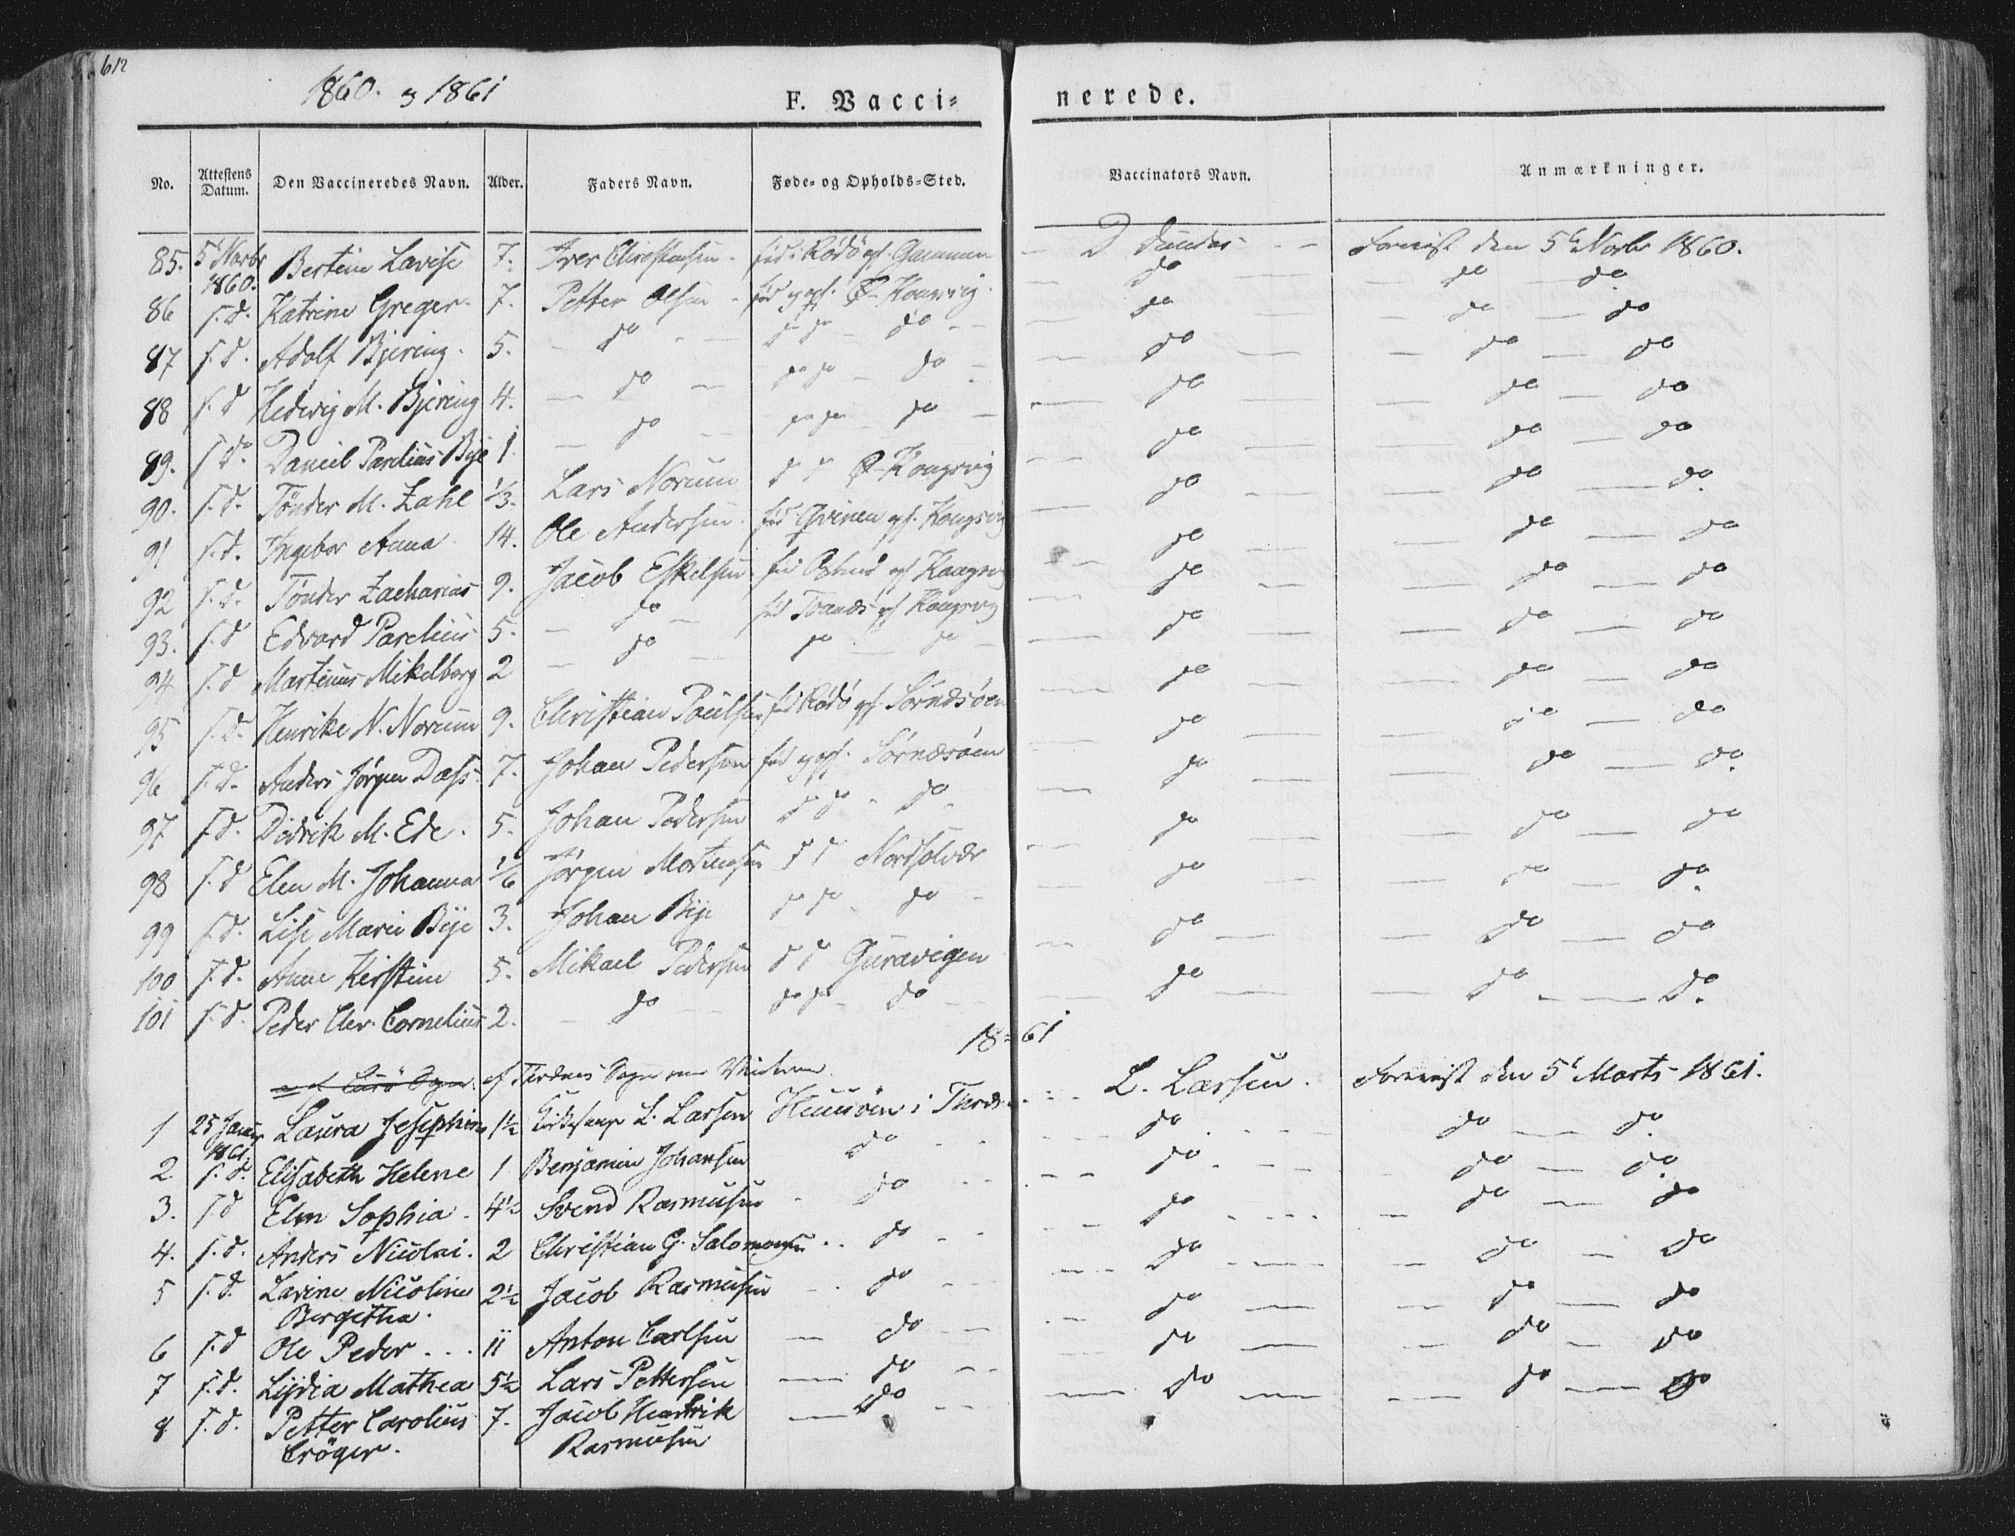 612
1860. og 1861
F. Vacci= nerede.
No. Attestens Datum. Den Vaccineredes Navn. Alder. Faders Navn. Føde- og Opholds-Sted. Vaccinators Navn. Anmærkninger.
85. 5t Novbr 1860. Bertine Lavise 7. Iver Christensen - fød i Rödö opf. - D - - den 5t Novbr 1860.
86 s. d. Katrine Greger 7. Petter Olsen - fød og opf. Kongsvig. do do do
87 s. d. Adolf Bjering. 5. do do do do do do do
88 s. d Hedevig M. Bjering 4. do do do do do do do
89. s. d. Daniel Parelius Bye 1 do do do do do do do
90. s. d. Tönder M. Zahl 1/3. Lars Norum d d Kongsvig do do do
91 s. d. Ingebor Anna 14. Ole Andersen. fød opf. Kongsvig do do do
92 s. d. Tönder Zacharias 9. Jacob Eskelsen fød opf Kongsvig do do do
93. s. d Edvard Parelius 5. do fød opf Kongsvig do do do
94 s. d Martinus Mikelborg 2 do do do do do do
95 s. d. Henrike N. Norum 9. Christian Poulsen fød Rödö opf. Sörnæsöen do do do
96 s. d. Anders Jörgen Dass. 7. Johan Pedersen fød og opf. Sörnæsöen do do do
97 s. d. Didrik M. Ede. 5. Johan Pedersen d do do do do do
98 s. d Elen M. Johanna 1/6 Jörgen Mortensen d d Nordsolvær do do do
99 s. d. Lise Marie Bye 3. Johan Bye do do do do do do
100 s. d. Anne Kirstine 5. Mikael Pedersen d d Guravigen do do do
101 s. d. Peder Chr. Cornelius 2. do do do do do do do
1861
Sogn
1 25 Januar 1861 Laura Josephine 1½ L. Larsen Huusöen i - L. Larsen. den 5t Marts 1861.
2 s. d. Elisabeth Helene 1 Benjamin Johansen do do do do
3. s. d Elen Sophia - 4½ Svend Rasmusen do do do do
4. s. d. Anders Nicolai. 2 Christian G. Salomonsen do do do do
5 s. d. Lavine Nicoline Bergetha. 2½ Jacob Rasmusen do do do do
6 s. d Ole Peder 11 Anton Carlsen do do do do
7 s. d. Lydia Mathea 5½ Lars Pettersen do do do do
8 s. d. Petter Carolius Cröger. 7. Jacob Hendrik Rasmusen do do do do